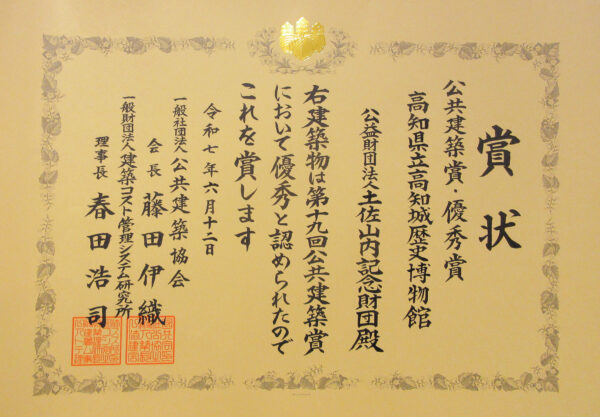 賞状
公共建築賞・優秀賞
高知県立高知城歴史博物館
公益財団法人土佐山内記念財団殿
右建築物は第十九回公共建築賞
において優秀と認められたので
これを賞します
令和七年六月十二日
一般社団法人公共建築協会
会長 藤田伊織
一般財団法人建築コスト管理システム研究所
理事長 春田浩司